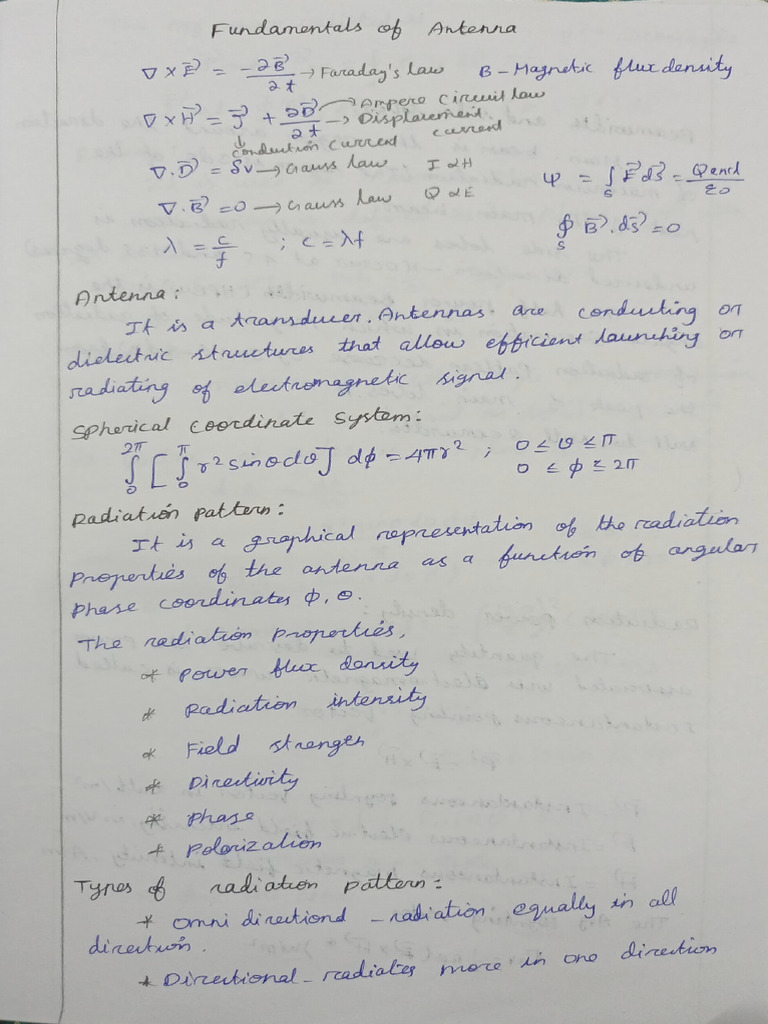 Fundamentals of Antenna
∇ × E⃗ = -∂B⃗/∂t → Faraday's law B - Magnetic flux density
∇ × H⃗ = J⃗ + ∂D⃗/∂t → Ampere Circuit law → Displacement current
↓ conduction current
∇ . D⃗ = δv → Gauss law . I ∝ H ψ = ∫s E⃗ ds⃗ = Qencl/ε0
∇ . B⃗ = 0 → Gauss law Q ∝ E
λ = c/f ; c = λf ∮s B⃗ . ds⃗ = 0
Antenna :
It is a transducer. Antennas are conducting or
dielectric structures that allow efficient launching or
radiating of electromagnetic signal.
Spherical Coordinate System :
∫₀^2π [ ∫₀^π r² sinθ dθ ] dϕ = 4πr² ; 0 ≤ θ ≤ π
0 ≤ ϕ ≤ 2π
Radiation pattern :
It is a graphical representation of the radiation
properties of the antenna as a function of angular
phase coordinates ϕ, θ.
The radiation properties,
* power flux density
* Radiation intensity
* Field strength
* Directivity
* phase
* polarization
Types of radiation pattern :
* omni directiond - radiation equally in all
direction.
* Directional - radiates more in one direction